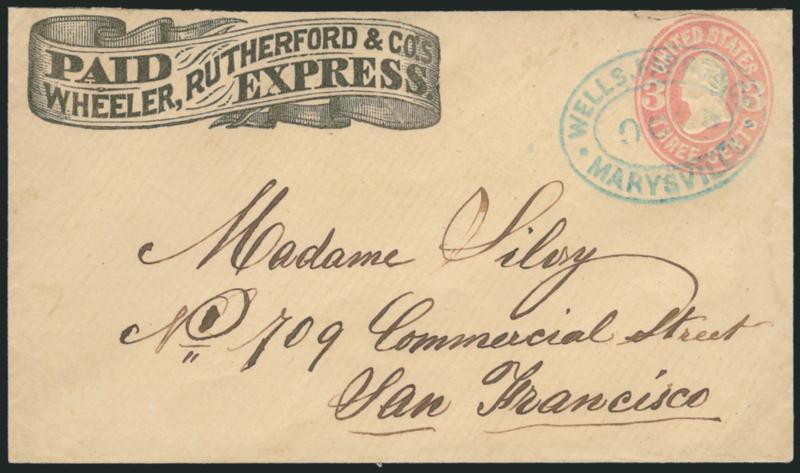 PAID
WHEELER, RUTHERFORD & CO'S
EXPRESS.
UNITED STATES
3 3
THREE CENTS
WELLS,
MARYSVILLE
Madame Silvy
No 709 Commercial Street
San Francisco